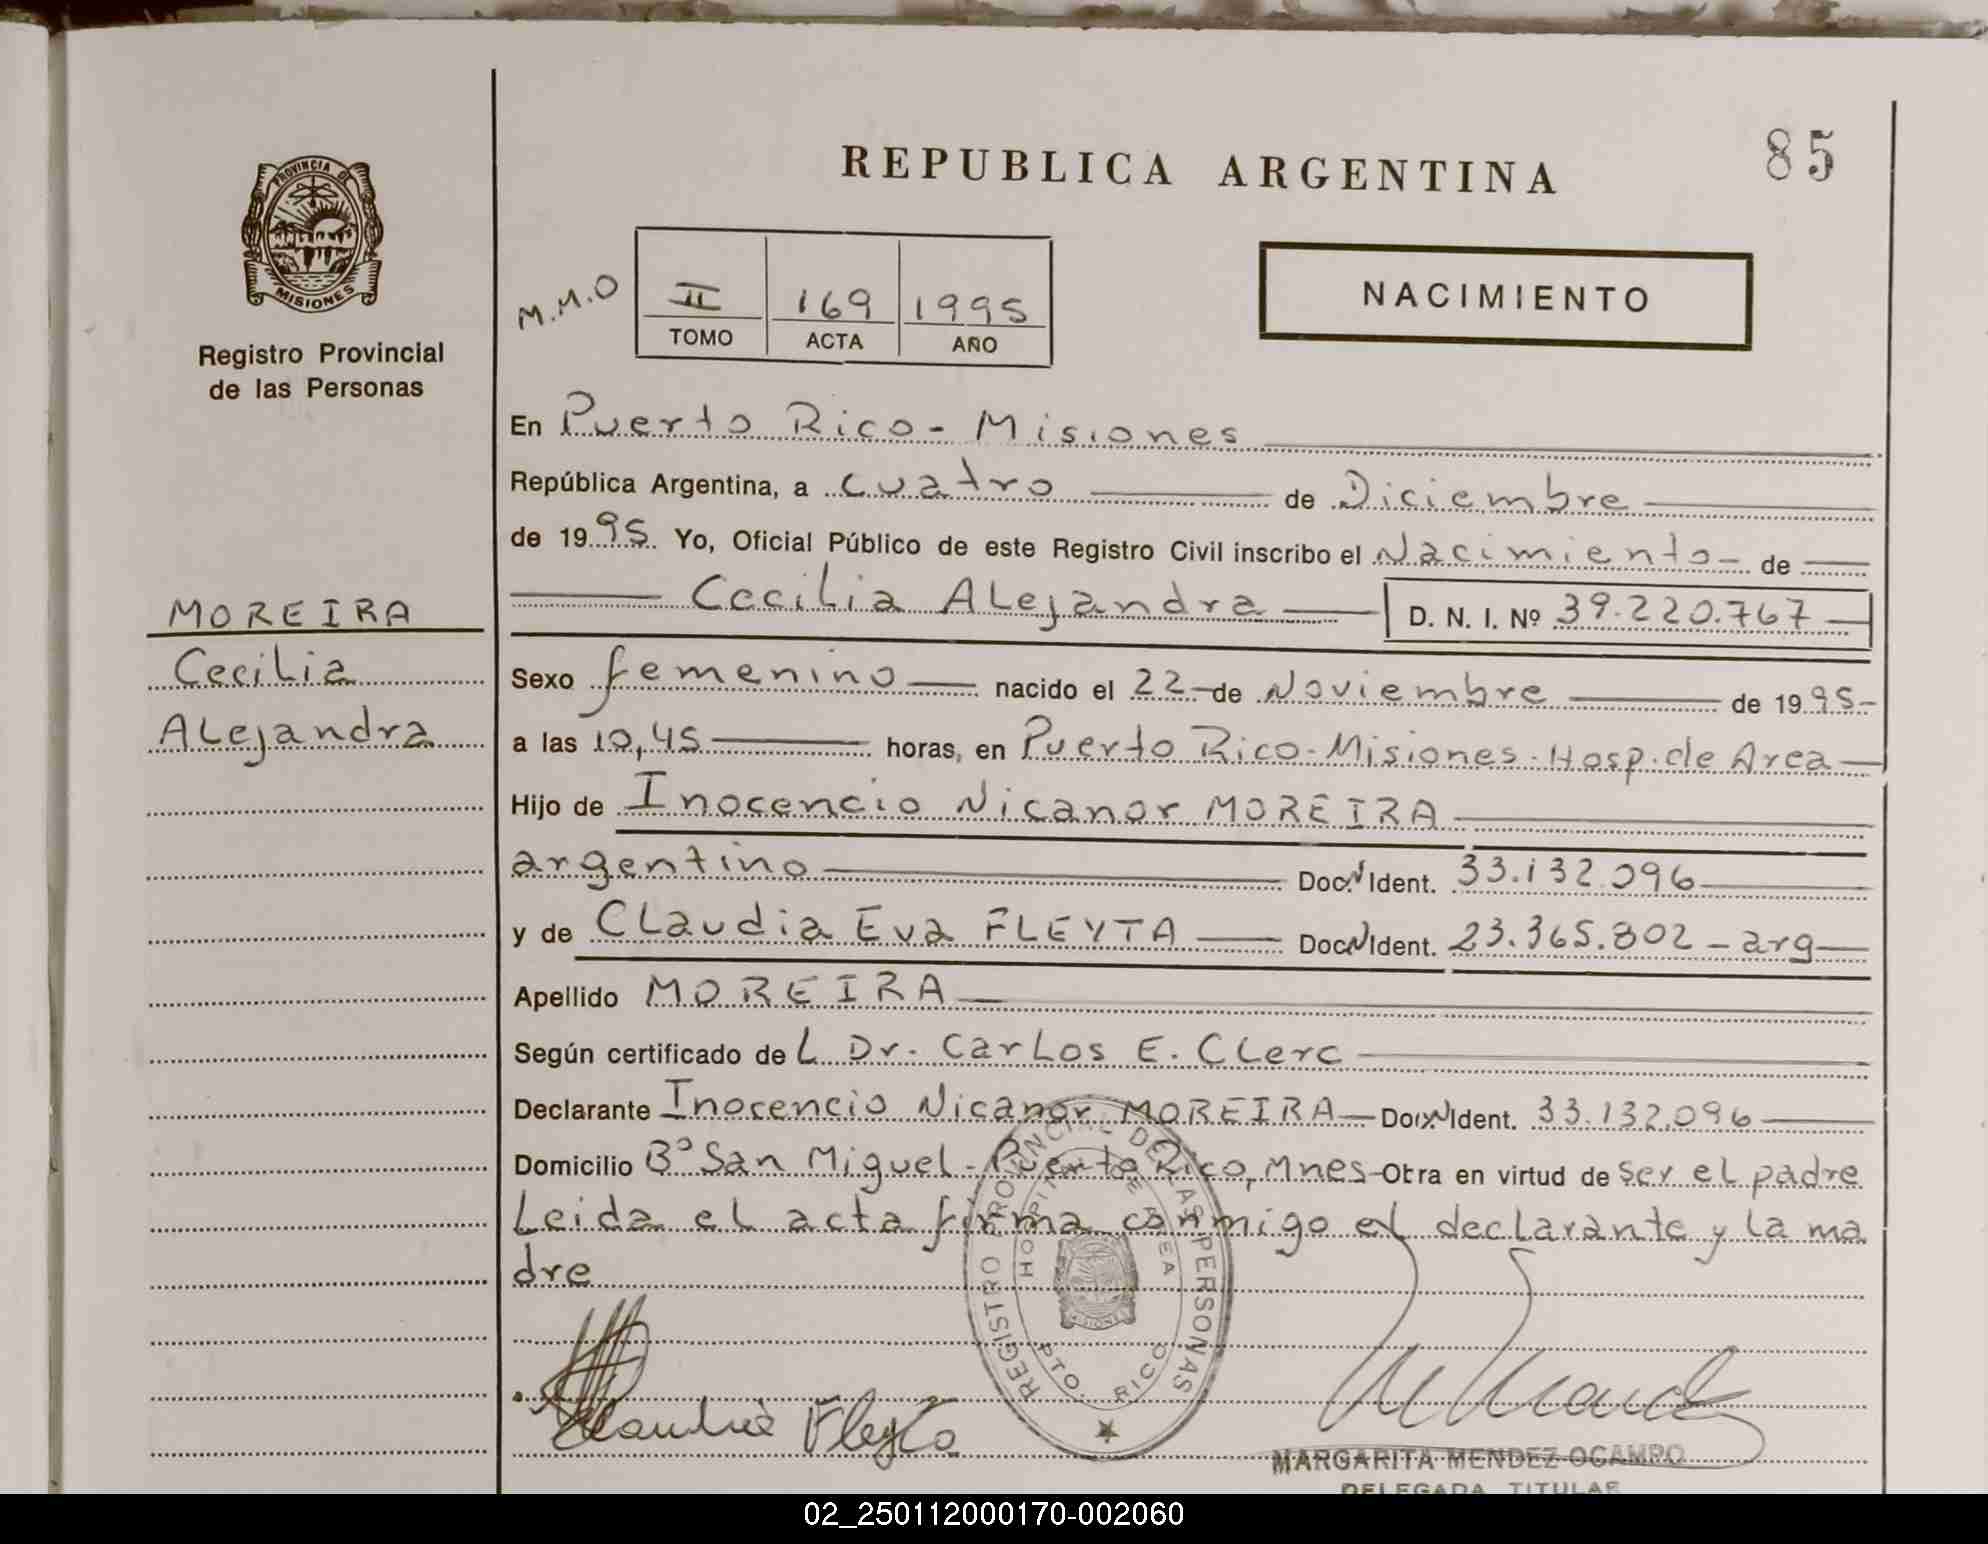 85
REPUBLICA ARGENTINA
PROVINCIA D
MISIONES
Registro Provincial
de las Personas
M.M.O
II 169 1995
TOMO ACTA AÑO
NACIMIENTO
En Puerto Rico - Misiones
República Argentina, a cuatro de Diciembre
de 1995. Yo, Oficial Público de este Registro Civil inscribo el Nacimiento - de
Cecilia Alejandra D. N. I. Nº 39.220.767
MOREIRA
Cecilia
Alejandra
Sexo femenino nacido el 22 de Noviembre de 1995-
a las 10,45 horas, en Puerto Rico - Misiones - Hosp. de Area
Hijo de Inocencio Nicanor MOREIRA
argentino Doc.N Ident. 33.132.096
y de Claudia Eva FLEYTA Doc.N Ident. 23.365.802 - arg
Apellido MOREIRA
Según certificado de L Dr. Carlos E. Clerc
Declarante Inocencio Nicanor MOREIRA Doc.N Ident. 33.132.096
Domicilio Bº San Miguel - Puerto Rico, Mnes - Otra en virtud de ser el padre
Leida el acta firma conmigo el declarante y la ma
dre
REGISTRO PROVINCIAL DE LAS PERSONAS
HOSPITAL DE AREA
PTO. RICO
Claudia Fleyta
MARGARITA MENDEZ OCAMPO
DELEGADA TITULAR
02_250112000170-002060